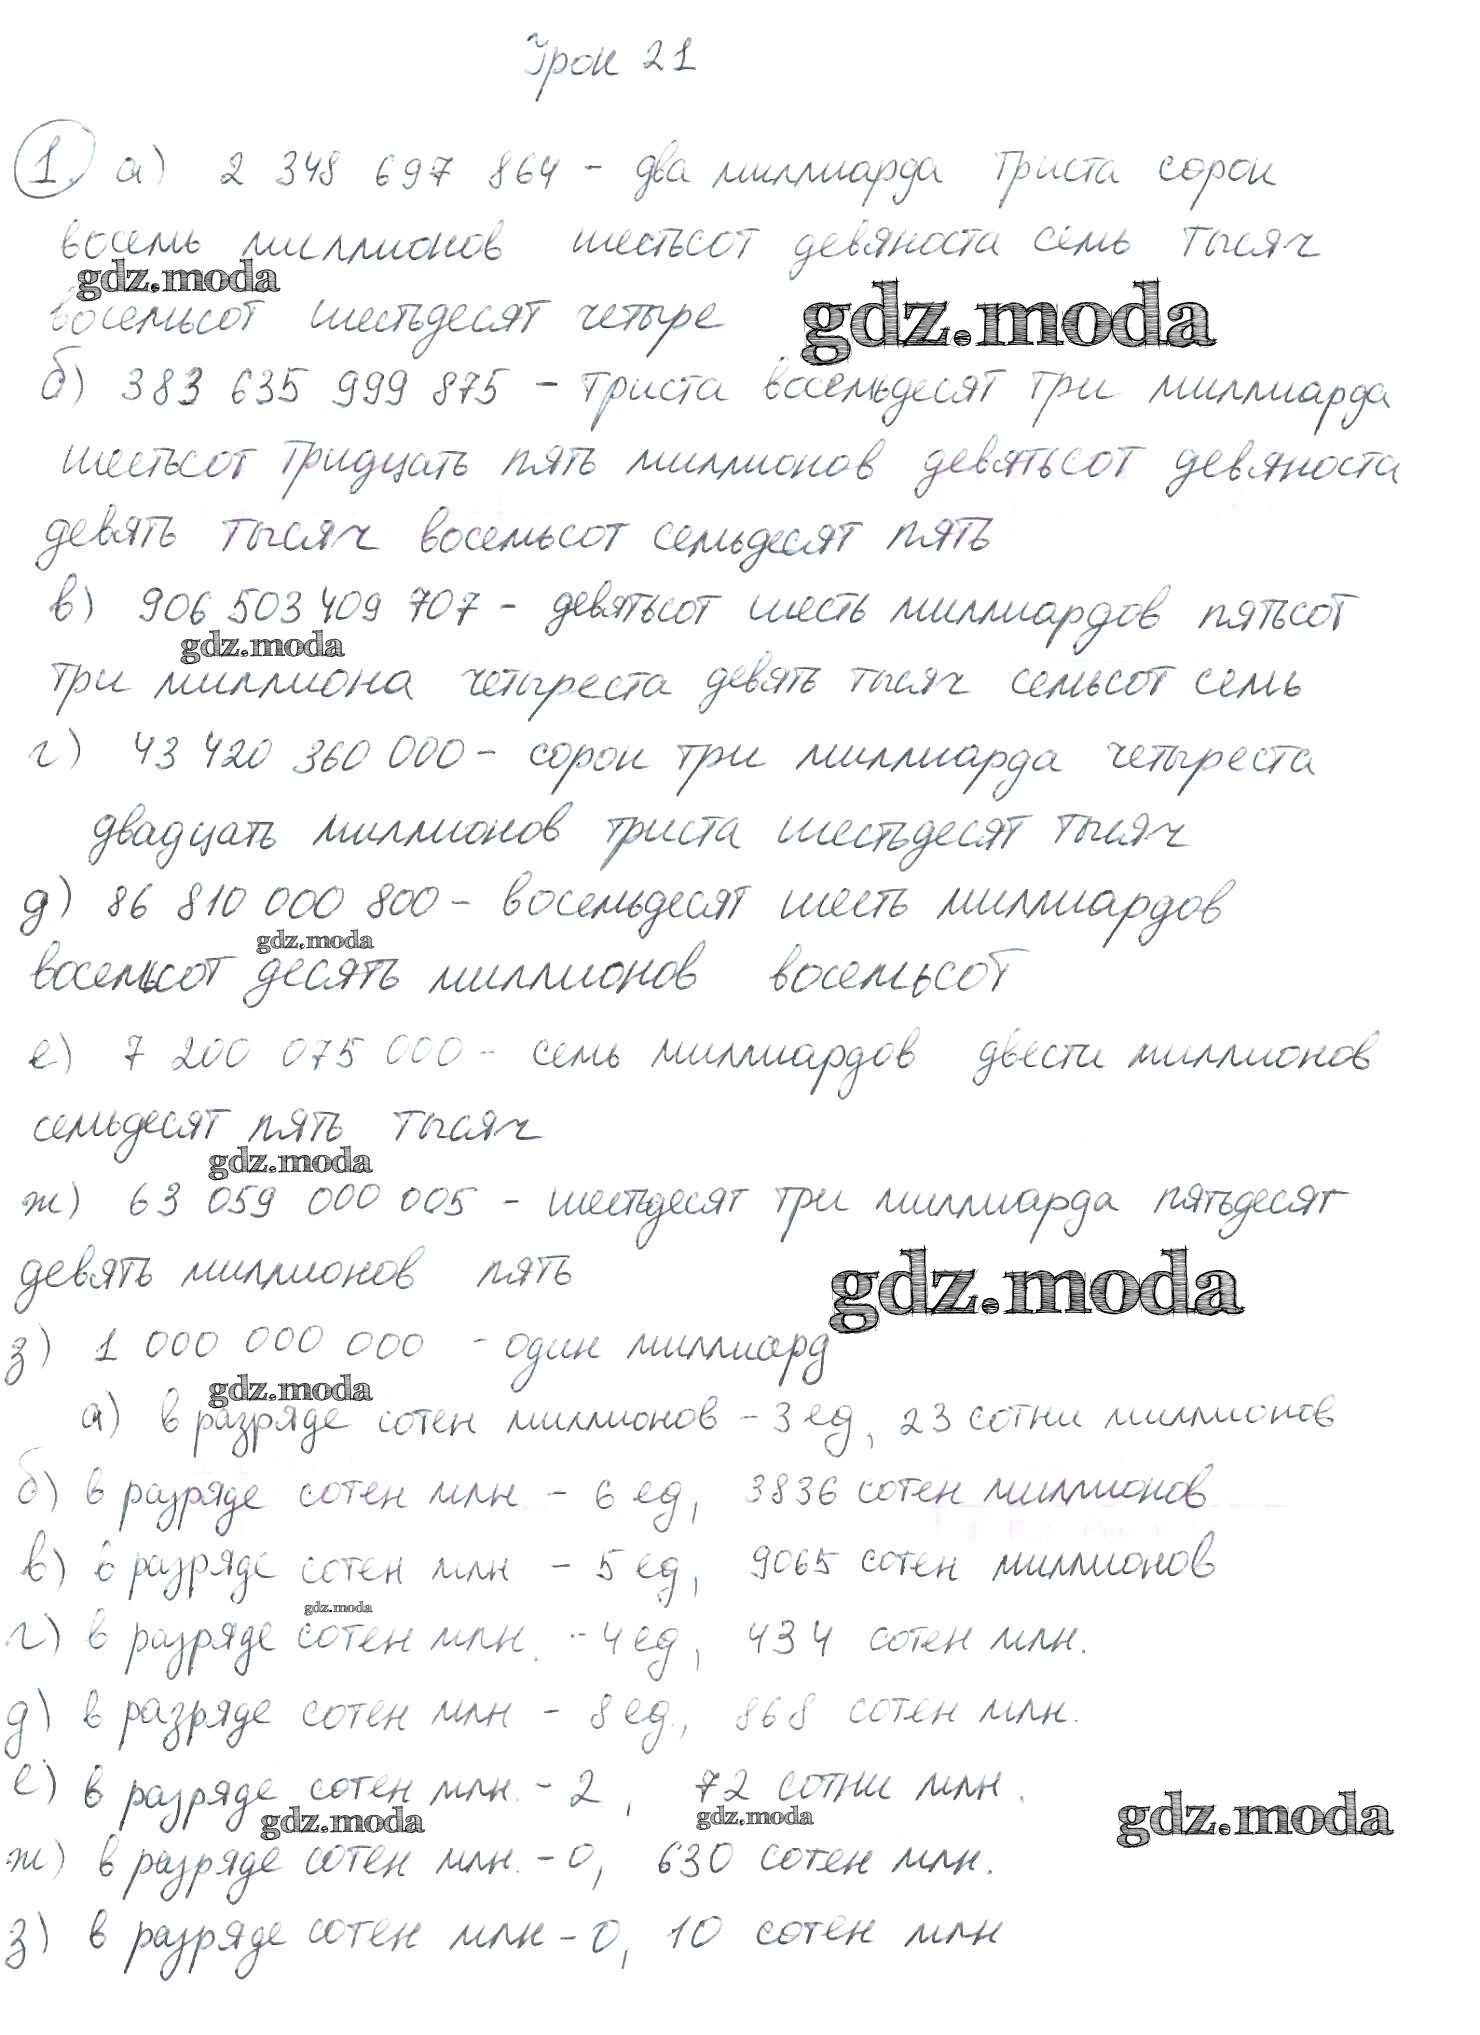 Урок 21
1. а) 2 348 697 864 - два миллиарда триста сорок
восемь миллионов шестьсот девяноста семь тысяч
gdz.moda
восемьсот шестьдесят четыре
gdz.moda
б) 383 635 999 875 - триста восемьдесят три миллиарда
шестьсот тридцать пять миллионов девятьсот девяноста
девять тысяч восемьсот семьдесят пять
в) 906 503 409 707 - девятьсот шесть миллиардов пятьсот
gdz.moda
три миллиона четыреста девять тысяч семьсот семь
г) 43 420 360 000 - сорок три миллиарда четыреста
двадцать миллионов триста шестьдесят тысяч
д) 86 810 000 800 - восемьдесят шесть миллиардов
gdz.moda
восемьсот десять миллионов восемьсот
е) 7 200 075 000 - семь миллиардов двести миллионов
семьдесят пять тысяч
gdz.moda
ж) 63 059 000 005 - шестьдесят три миллиарда пятьдесят
девять миллионов пять
gdz.moda
з) 1 000 000 000 - один миллиард
gdz.moda
а) в разряде сотен миллионов - 3 ед, 23 сотни миллионов
б) в разряде сотен млн - 6 ед, 3836 сотен миллионов
в) в разряде сотен млн - 5 ед, 9065 сотен миллионов
gdz.moda
г) в разряде сотен млн. - 4 ед, 434 сотен млн.
д) в разряде сотен млн - 8 ед, 868 сотен млн.
е) в разряде сотен млн. - 2, 72 сотни млн.
gdz.moda gdz.moda gdz.moda
ж) в разряде сотен млн. - 0, 630 сотен млн.
з) в разряде сотен млн - 0, 10 сотен млн